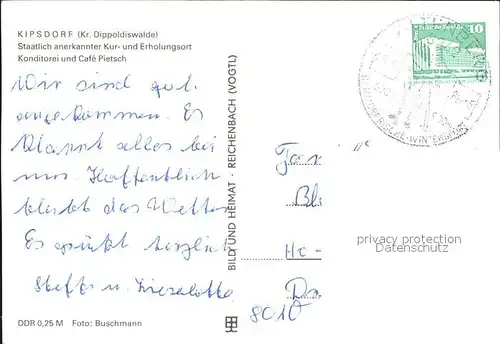 KIPSDORF (Kr. Dippoldiswalde)
Staatlich anerkannter Kur- und Erholungsort
Konditorei und Café Pietsch
Wir sind gut
angekommen. Es
klappt alles bei
uns. Hoffentlich
bleibt das Wetter
Es grüßt herzlich
Steffen u. Liezelotte
DDR 0,25 M Foto: Buschmann
BILD UND HEIMAT · REICHENBACH (VOGTL)
10
Fam
Bl
He
8010 Dr
privacy protection
Datenschutz